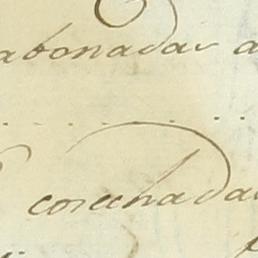 abonadas a
cosechadas